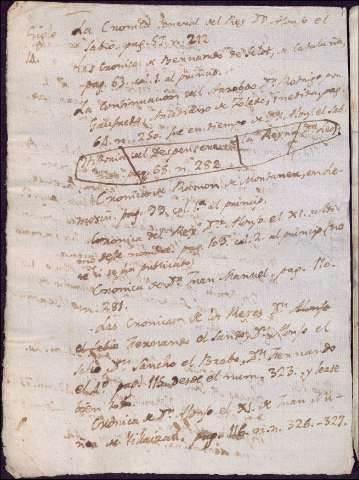 Siglo La Cronica general del Rey Dn. Alonso el
14. Sabio, pag. 57. n. 212
Las Cronicas de Bernardo de Sclot, de Cataluña,
pag. 63. col. 1. al principio.
La Continuacion del Arzobispo Dn. Rodrigo por
Gaufredo, Arcediano de Toledo, pag.
64. n. 250. fue en tiempo de Dn. Alonso el Sabio
Historia del Despensero de la Reyna Dña. Leonor
pag. 68. n. 282
Cronica de Ramon de Montaner, en
pag. 99. col. 1. al principio.
Cronica del Rey Dn. Alonso el XI.
pag. 105. col. 2. al principio (no
se si se ha publicado)
Cronica de Dn. Juan Manuel, pag. 110.
n. 281.
Las Cronicas de los Reyes Dn. Alonso
el Sabio Fernando el Santo, Dn. Alonso el
Sabio, Dn. Sancho el Brabo, Dn. Fernando
el 4º pag. 115. desde el num. 323. y
Cronica de Dn. Alonso el XI. de Juan Nu-
ñez de Villaizan. pag. 116 n. 326-327.